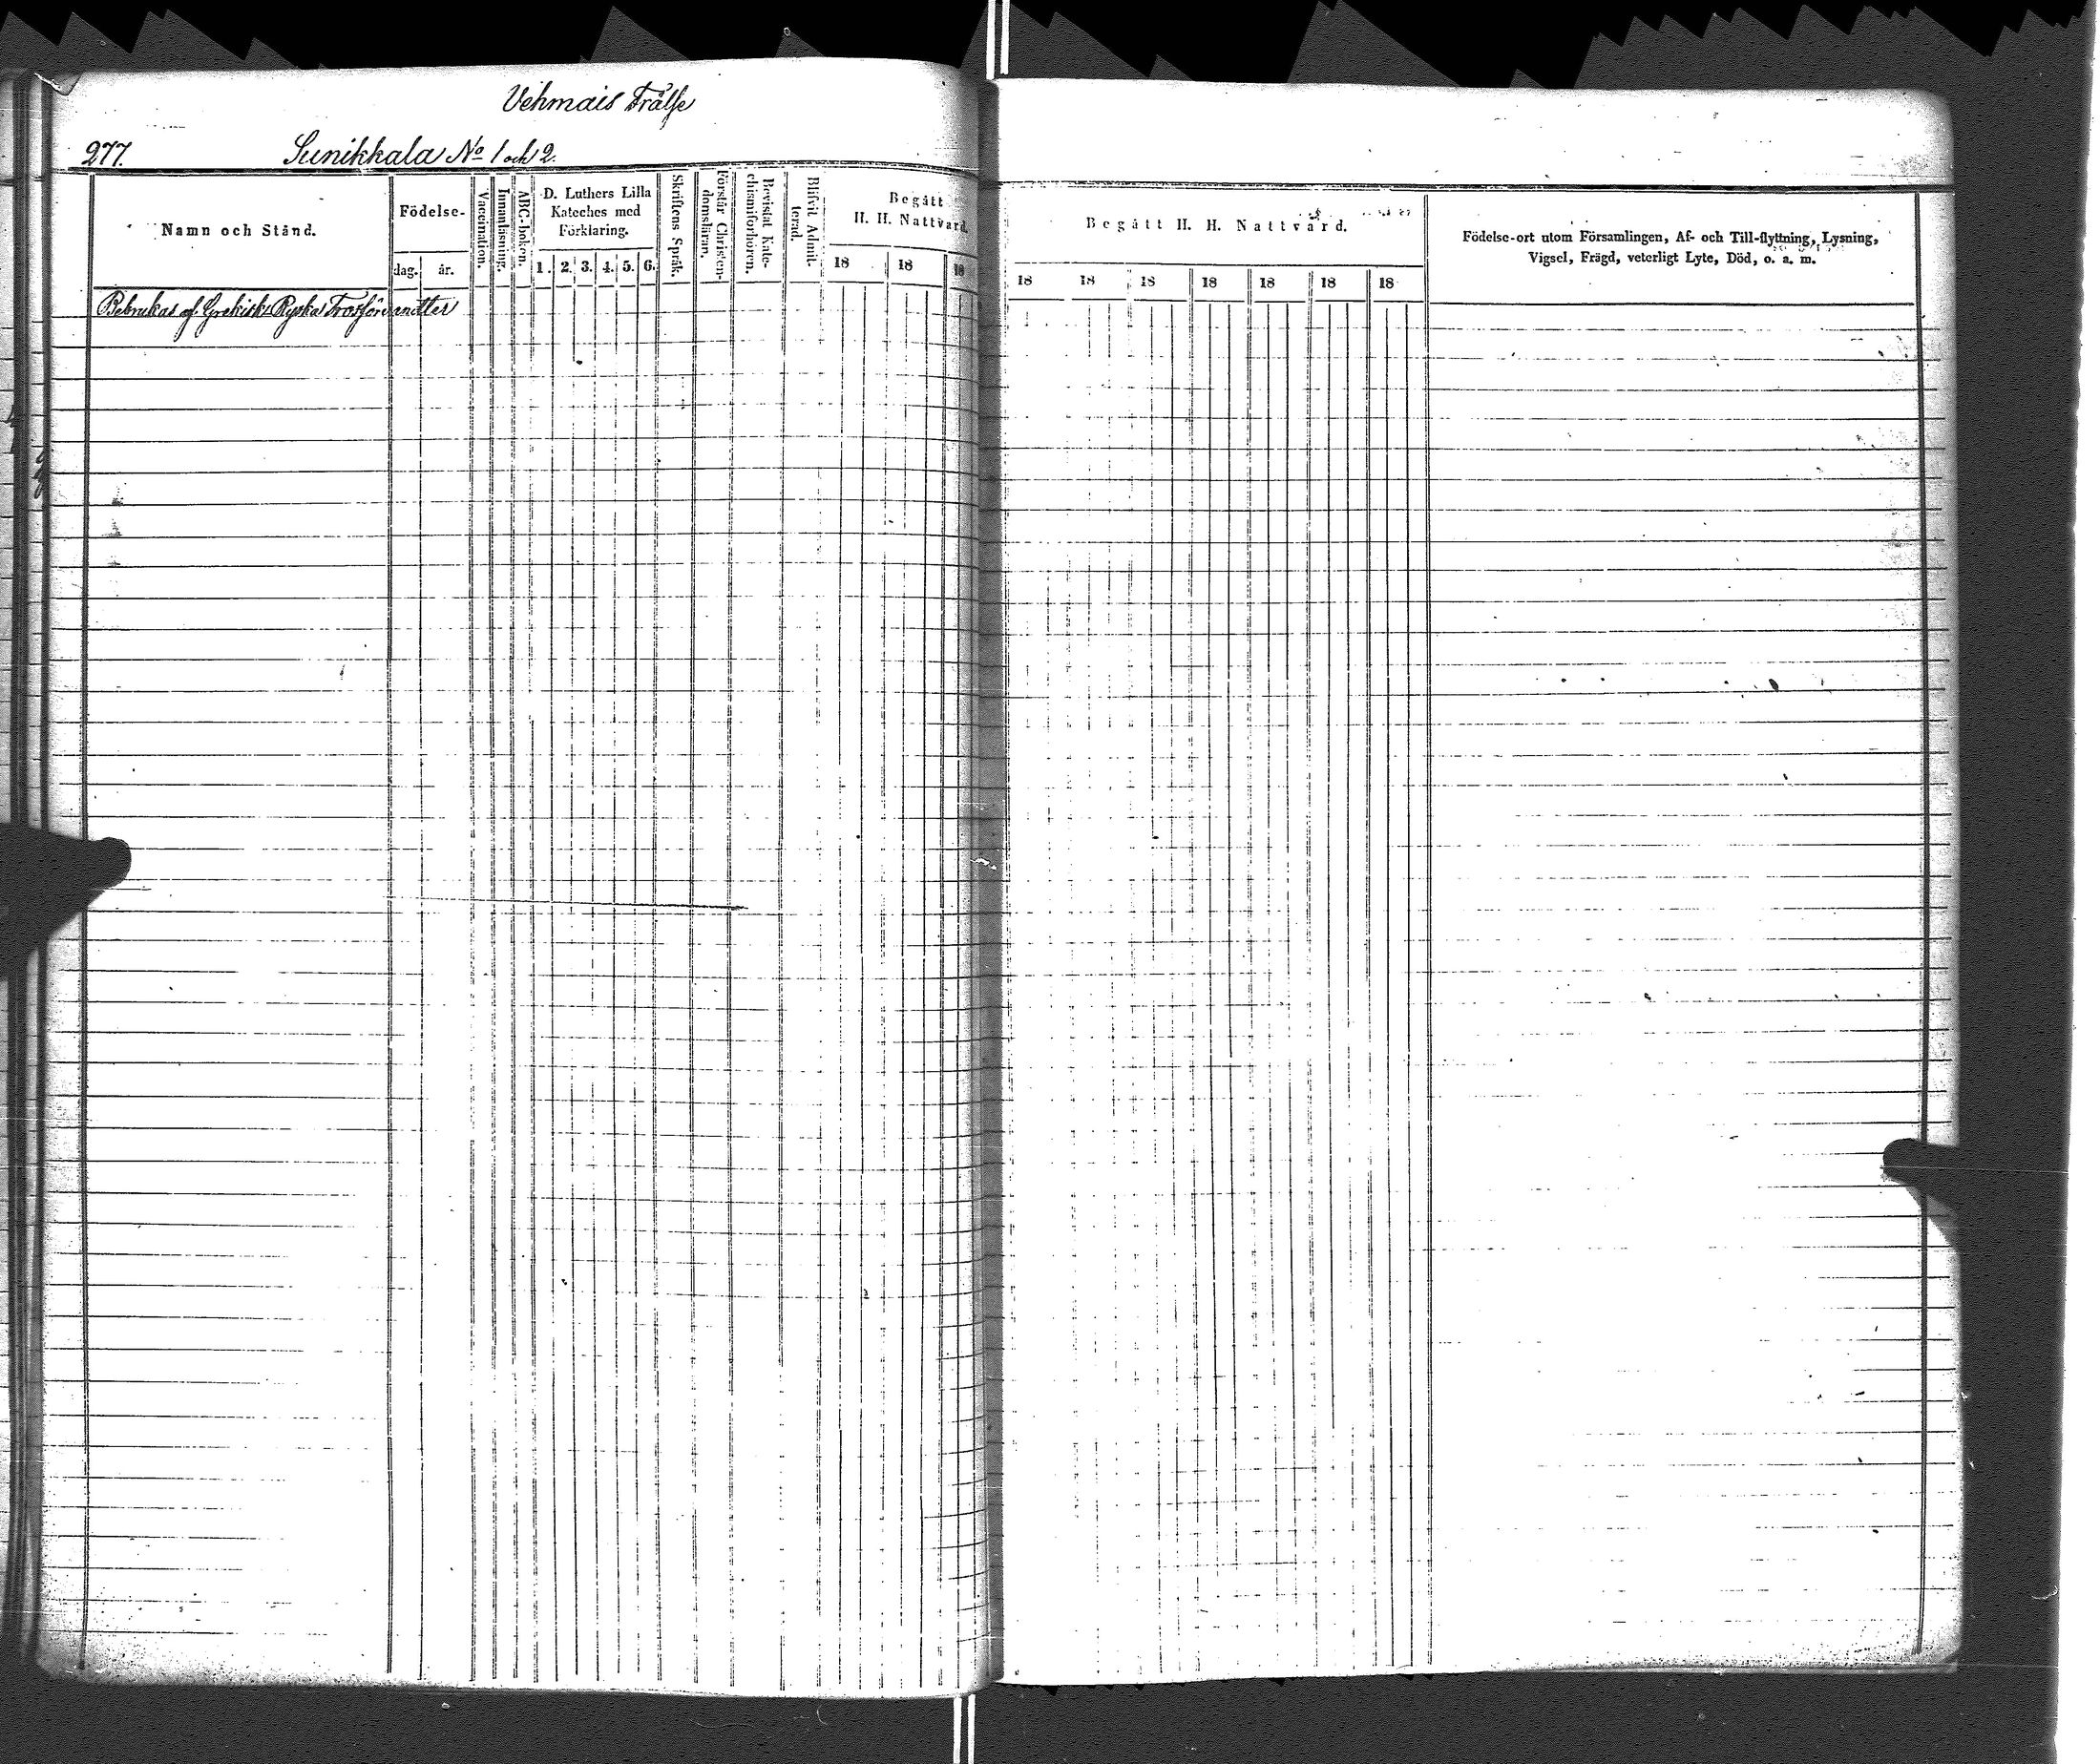 Vehmais Frälse
277. Sunikkala No 1 och 2.
Namn och Stånd.
Födelse-
dag. år.
Vaccination.
Innanläsning.
ABC-boken.
D. Luthers Lilla
Kateches med
Förklaring.
1. 2. 3. 4. 5. 6.
Skriftens Språk.
Förstår Christen-
domsläran.
Bevistat Kate-
chismiförhören.
Blifvit Admit-
terad.
Begått
H. H. Nattvard.
18 18 18
Begått H. H. Nattvard.
18 18 18 18 18 18 18
Födelse-ort utom Församlingen, Af- och Till-flyttning, Lysning,
Vigsel, Frägd, veterligt Lyte, Död, o. a. m.
Bebrukas af Grekisk-Ryska Trosförvandter